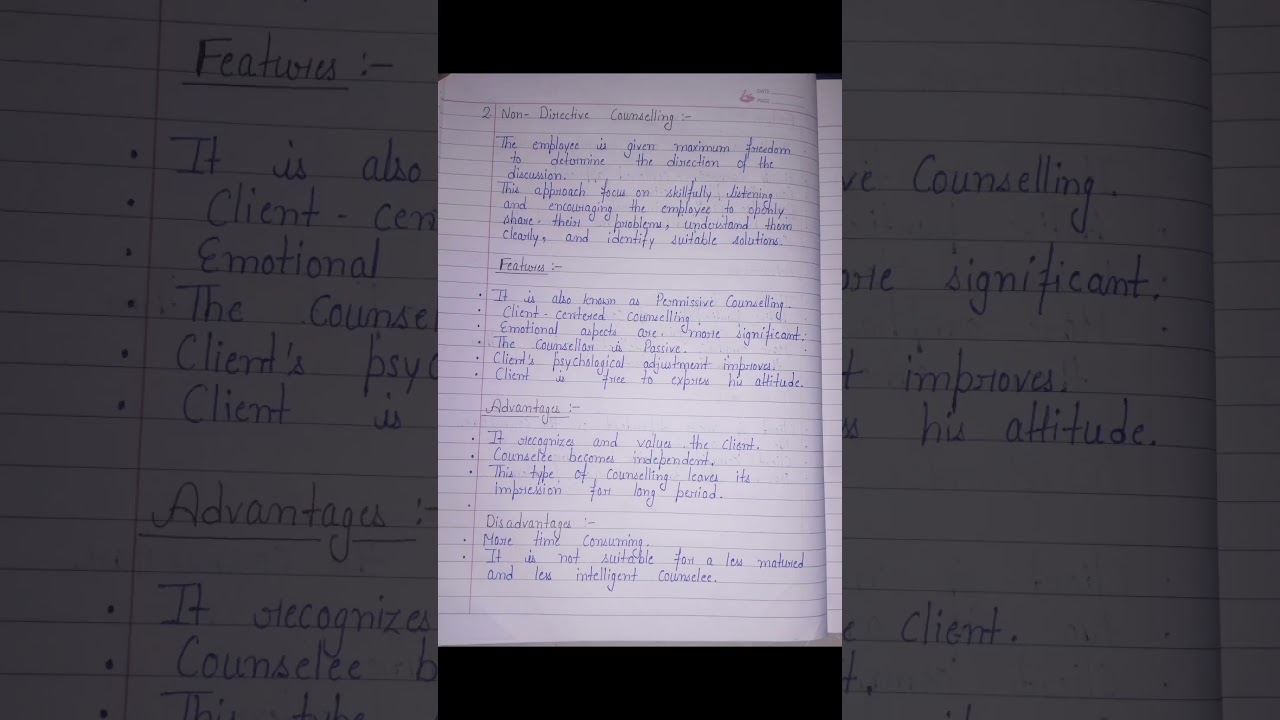 DATE
PAGE
2. Non-Directive Counselling :-
The employee is given maximum freedom
to determine the direction of the
discussion.
This approach focus on skillfully listening
and encouraging the employee to openly
share their problems, understand them
clearly, and identify suitable solutions.
Features :-
• It is also known as Permissive Counselling.
• Client-centered counselling
• Emotional aspects are more significant.
• The Counsellor is Passive.
• Client's psychological adjustment improves.
• Client is free to express his attitude.
Advantages :-
• It recognizes and values the client.
• Counselee becomes independent.
• This type of counselling leaves its
impression for long period.
•
Disadvantages :-
• More time Consuming.
• It is not suitable for a less matured
and less intelligent counselee.